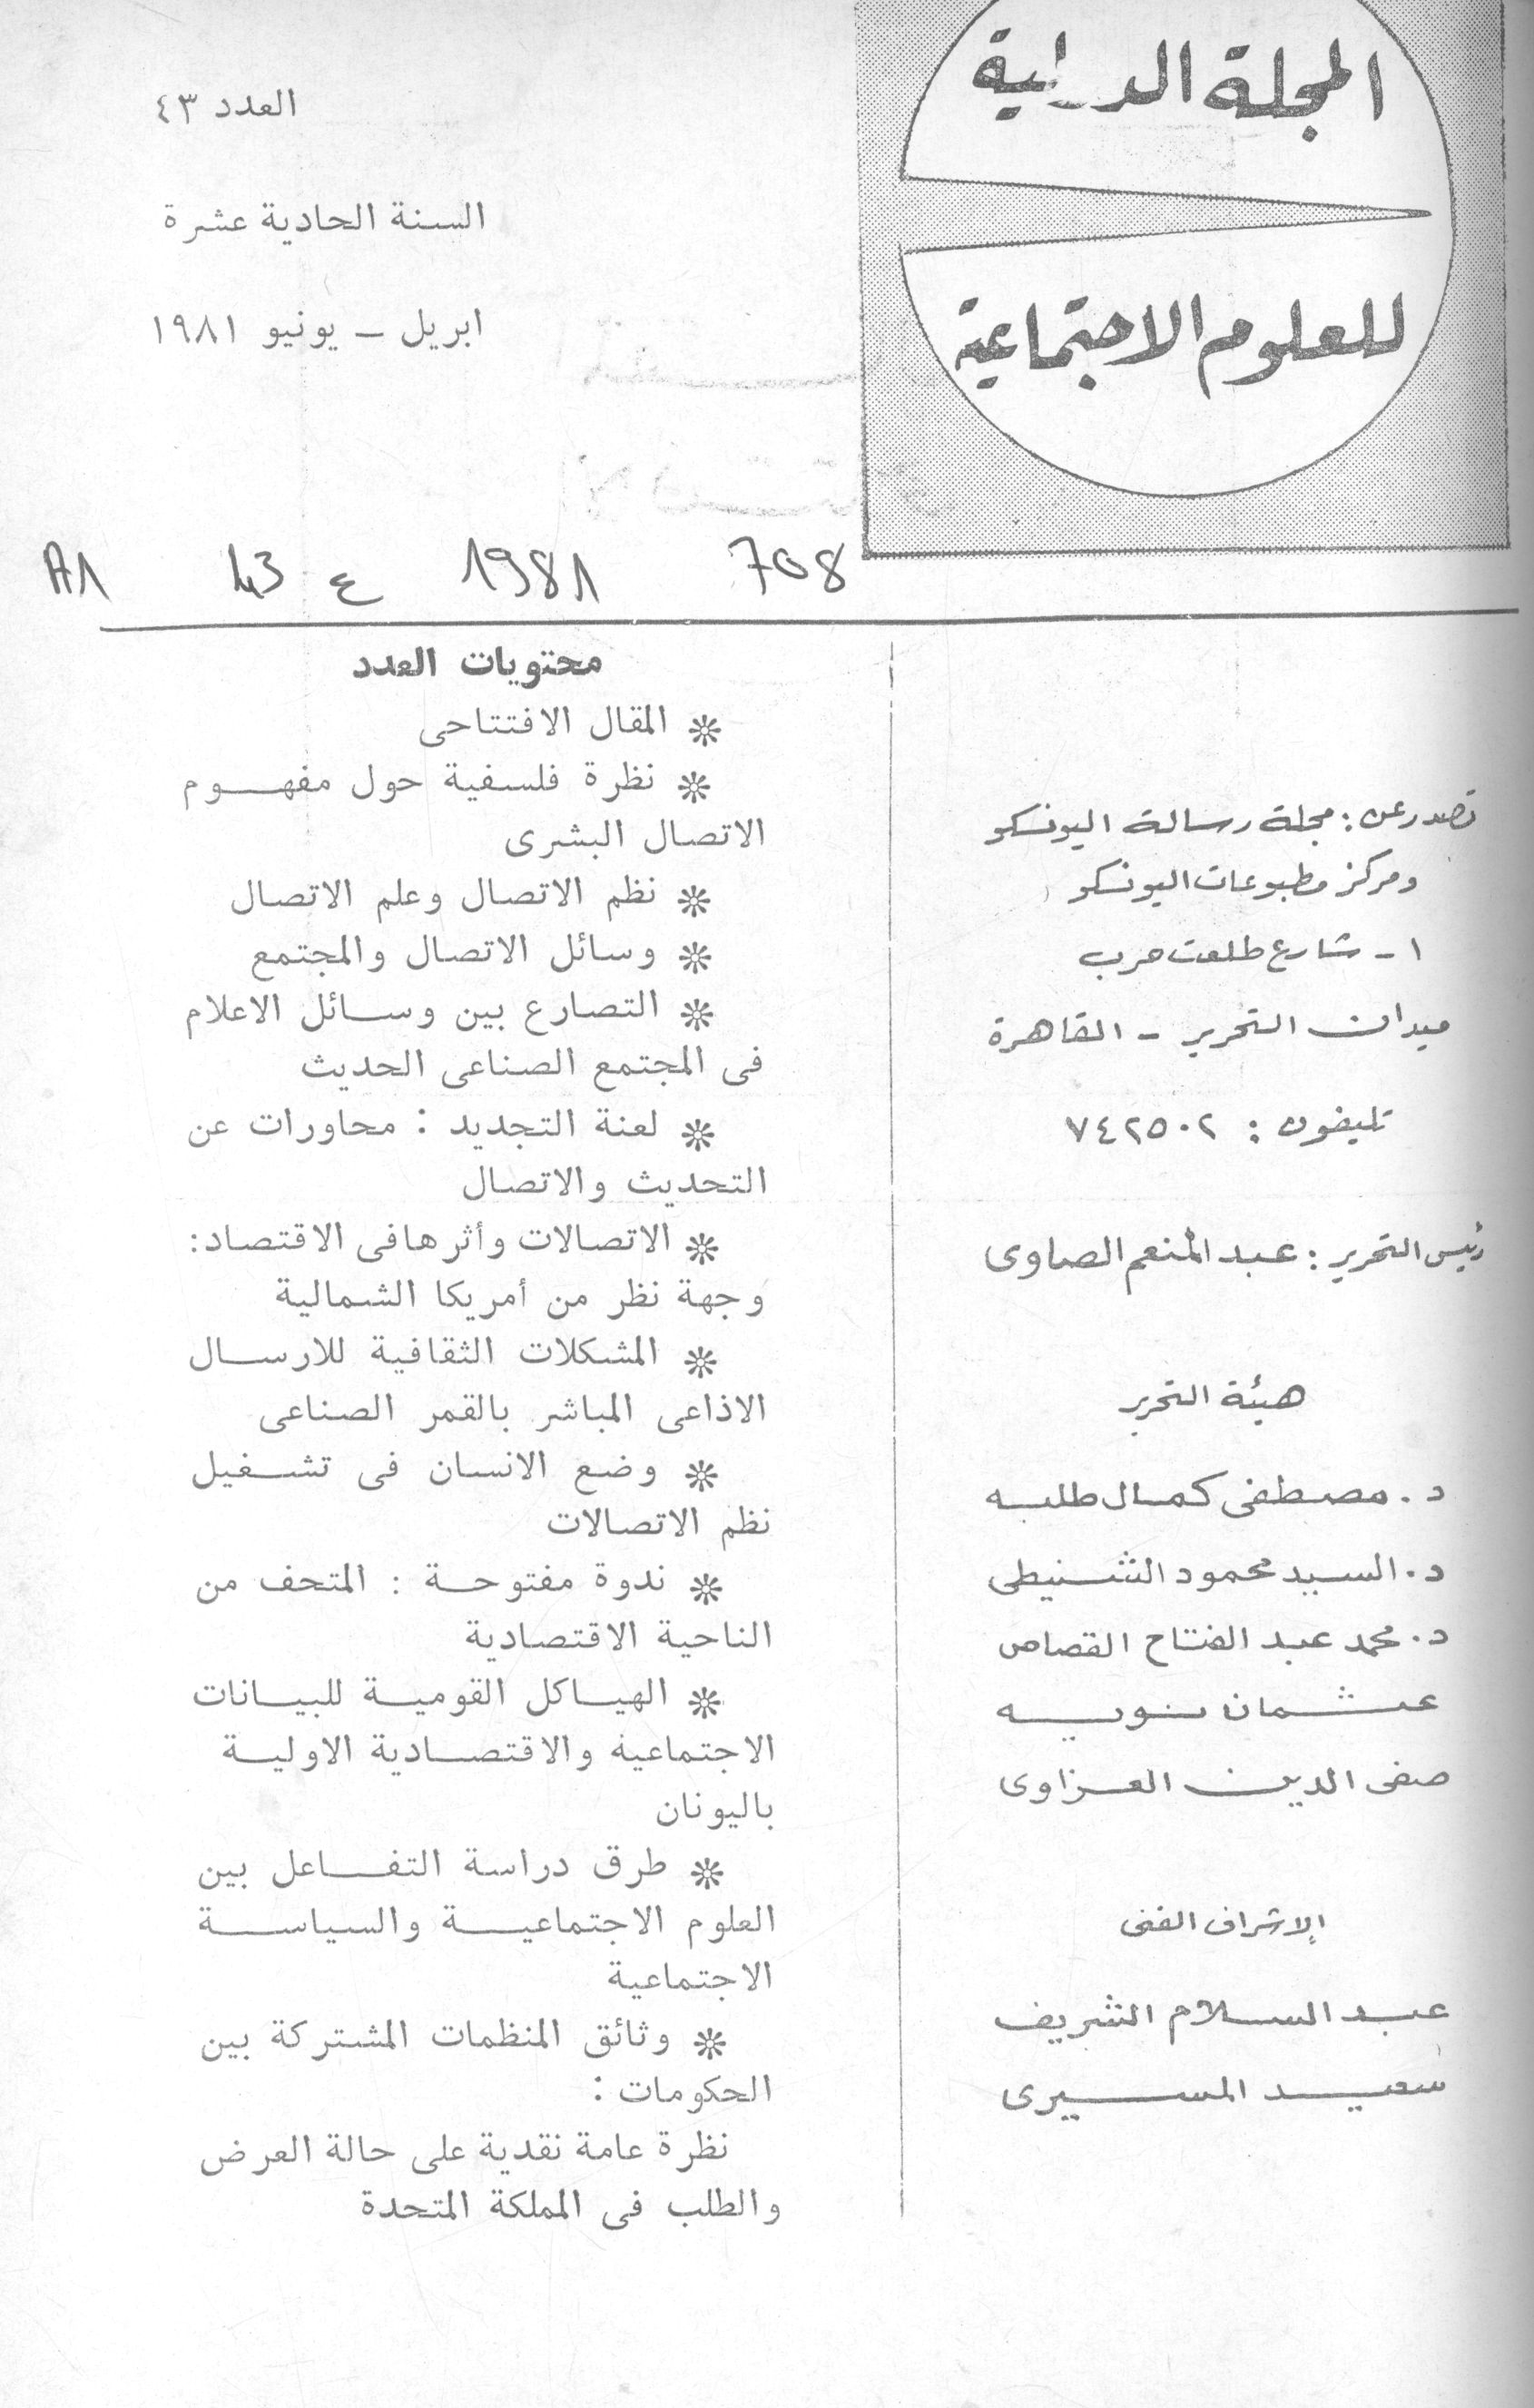 المجلة الدولية
للعلوم الاجتماعية
العدد ٤٣
السنة الحادية عشرة
ابريل – يونيو ١٩٨١
A1 43 ع 1981 708
تصدر عن : مجلة رسالة اليونسكو
ومركز مطبوعات اليونسكو
١ - شارع طلعت حرب
ميدان التحرير - القاهرة
تليفون : ٧٤٢٥٠٢
رئيس التحرير : عبد المنعم الصاوى
هيئة التحرير
د . مصطفى كمال طلبه
د . السيد محمود الشنيطى
د . محمد عبد الفتاح القصاص
عثمان نويه
صفى الدين العزاوى
الإشراف الفنى
عبد السلام الشريف
سعيد المسيرى
محتويات العدد
* المقال الافتتاحى
* نظرة فلسفية حول مفهوم
الاتصال البشرى
* نظم الاتصال وعلم الاتصال
* وسائل الاتصال والمجتمع
* التصارع بين وسائل الاعلام
فى المجتمع الصناعى الحديث
* لعنة التجديد : محاورات عن
التحديث والاتصال
* الاتصالات وأثرها فى الاقتصاد :
وجهة نظر من أمريكا الشمالية
* المشكلات الثقافية للارسال
الاذاعى المباشر بالقمر الصناعى
* وضع الانسان فى تشغيل
نظم الاتصالات
* ندوة مفتوحة : المتحف من
الناحية الاقتصادية
* الهياكل القومية للبيانات
الاجتماعية والاقتصادية الاولية
باليونان
* طرق دراسة التفاعل بين
العلوم الاجتماعية والسياسة
الاجتماعية
* وثائق المنظمات المشتركة بين
الحكومات :
نظرة عامة نقدية على حالة العرض
والطلب فى المملكة المتحدة